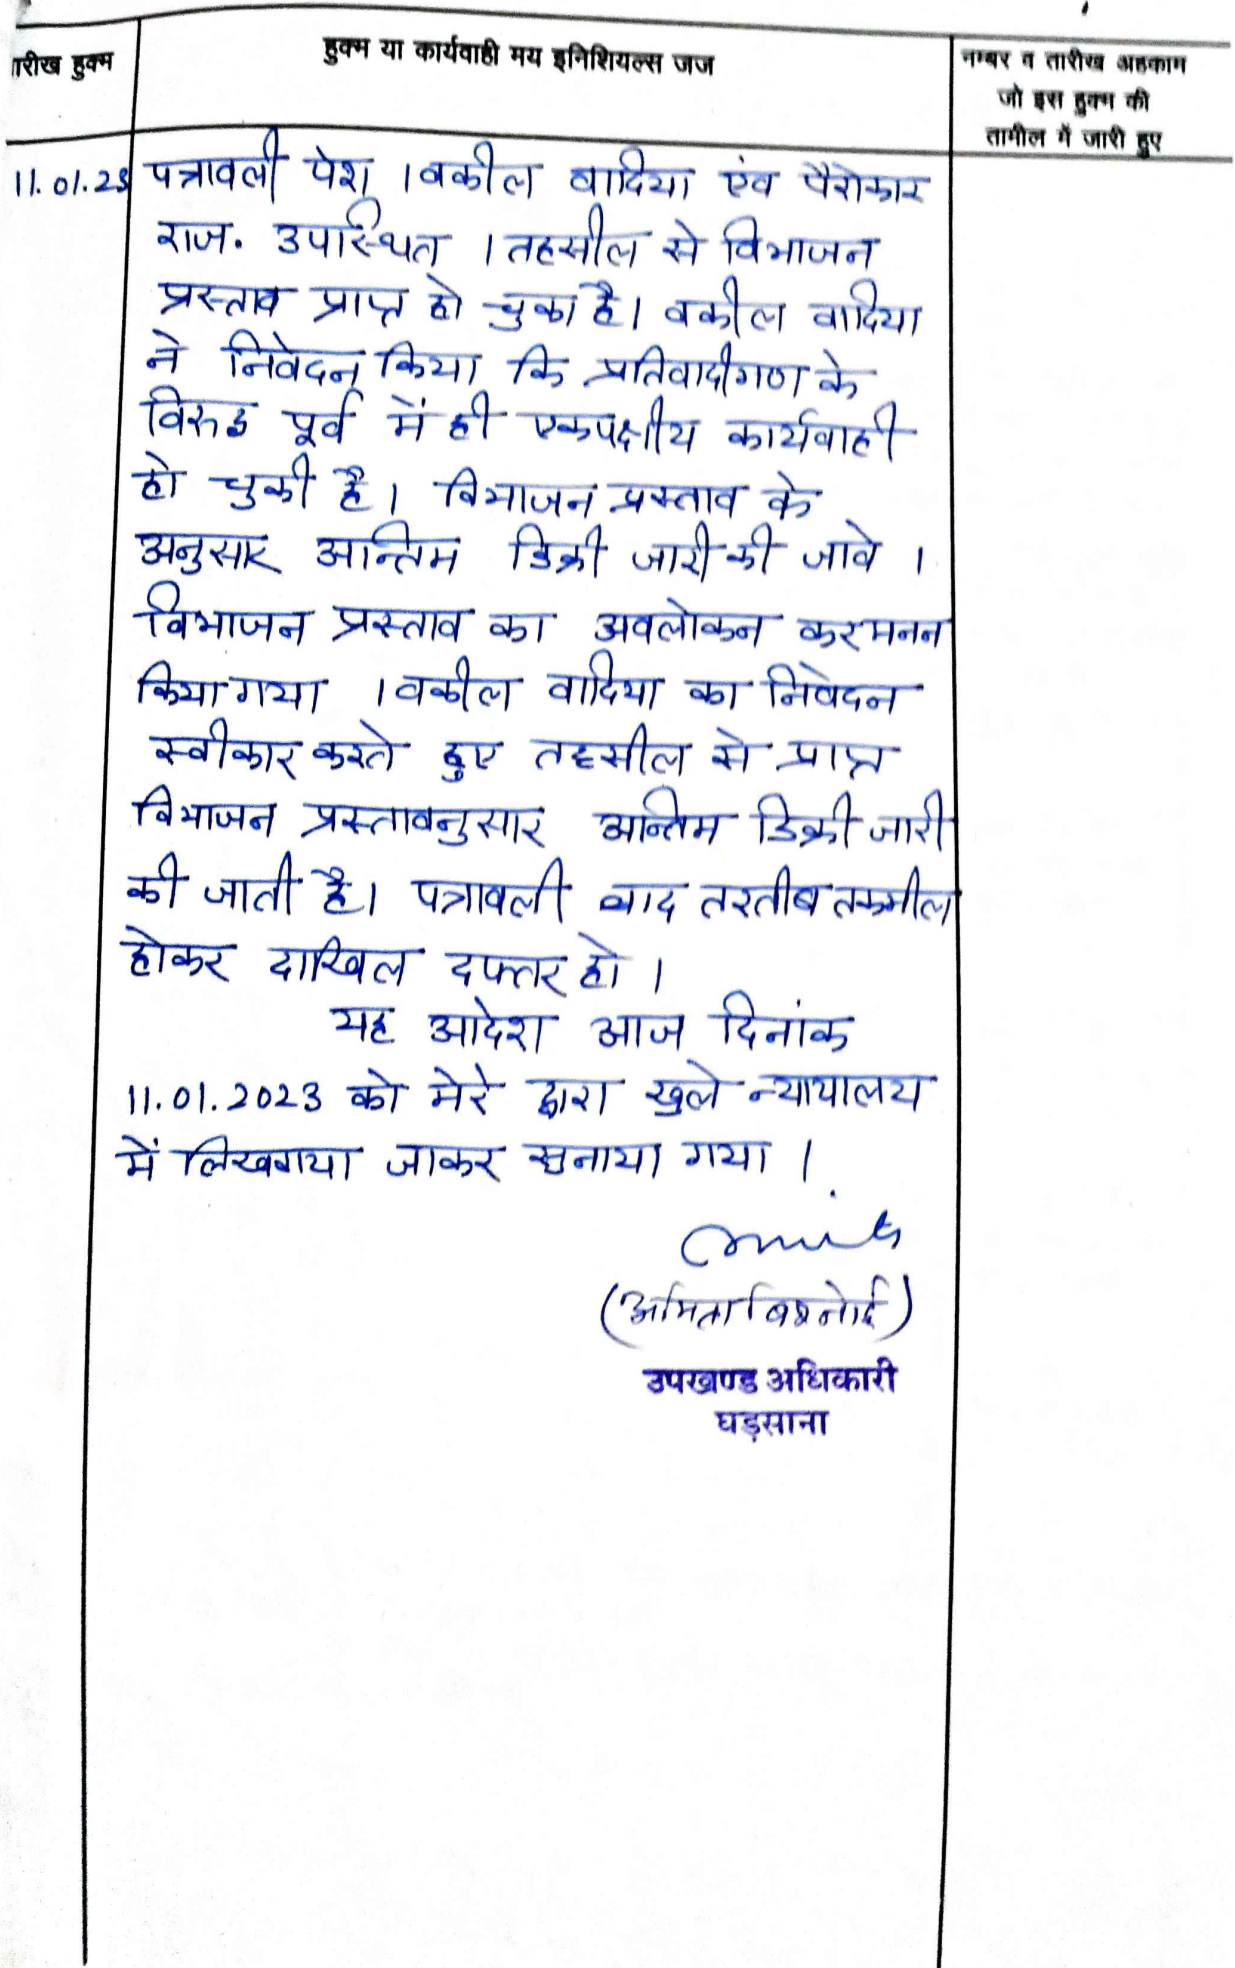 तारीख हुक्म
हुक्म या कार्यवाही मय इनिशियल्स जज
नम्बर व तारीख अहकाम
जो इस हुक्म की
तामील में जारी हुए
11.01.23
पत्रावली पेश। वकील वादिया एंव पैरोकार
राज. उपस्थित । तहसील से विभाजन
प्रस्ताव प्राप्त हो चुका है। वकील वादिया
ने निवेदन किया कि प्रतिवादीगण के
विरुद्ध पूर्व में ही एकपक्षीय कार्यवाही
हो चुकी है। विभाजन प्रस्ताव के
अनुसार अन्तिम डिक्री जारी की जावे ।
विभाजन प्रस्ताव का अवलोकन कर मनन
किया गया । वकील वादिया का निवेदन
स्वीकार करते हुए तहसील से प्राप्त
विभाजन प्रस्तावनुसार अन्तिम डिक्री जारी
की जाती है। पत्रावली बाद तरतीब तकमील
होकर दाखिल दफ्तर हो ।
यह आदेश आज दिनांक
11.01.2023 को मेरे द्वारा खुले न्यायालय
में लिखवाया जाकर सुनाया गया ।
(अमिता बिश्नोई)
उपखण्ड अधिकारी
घड़साना